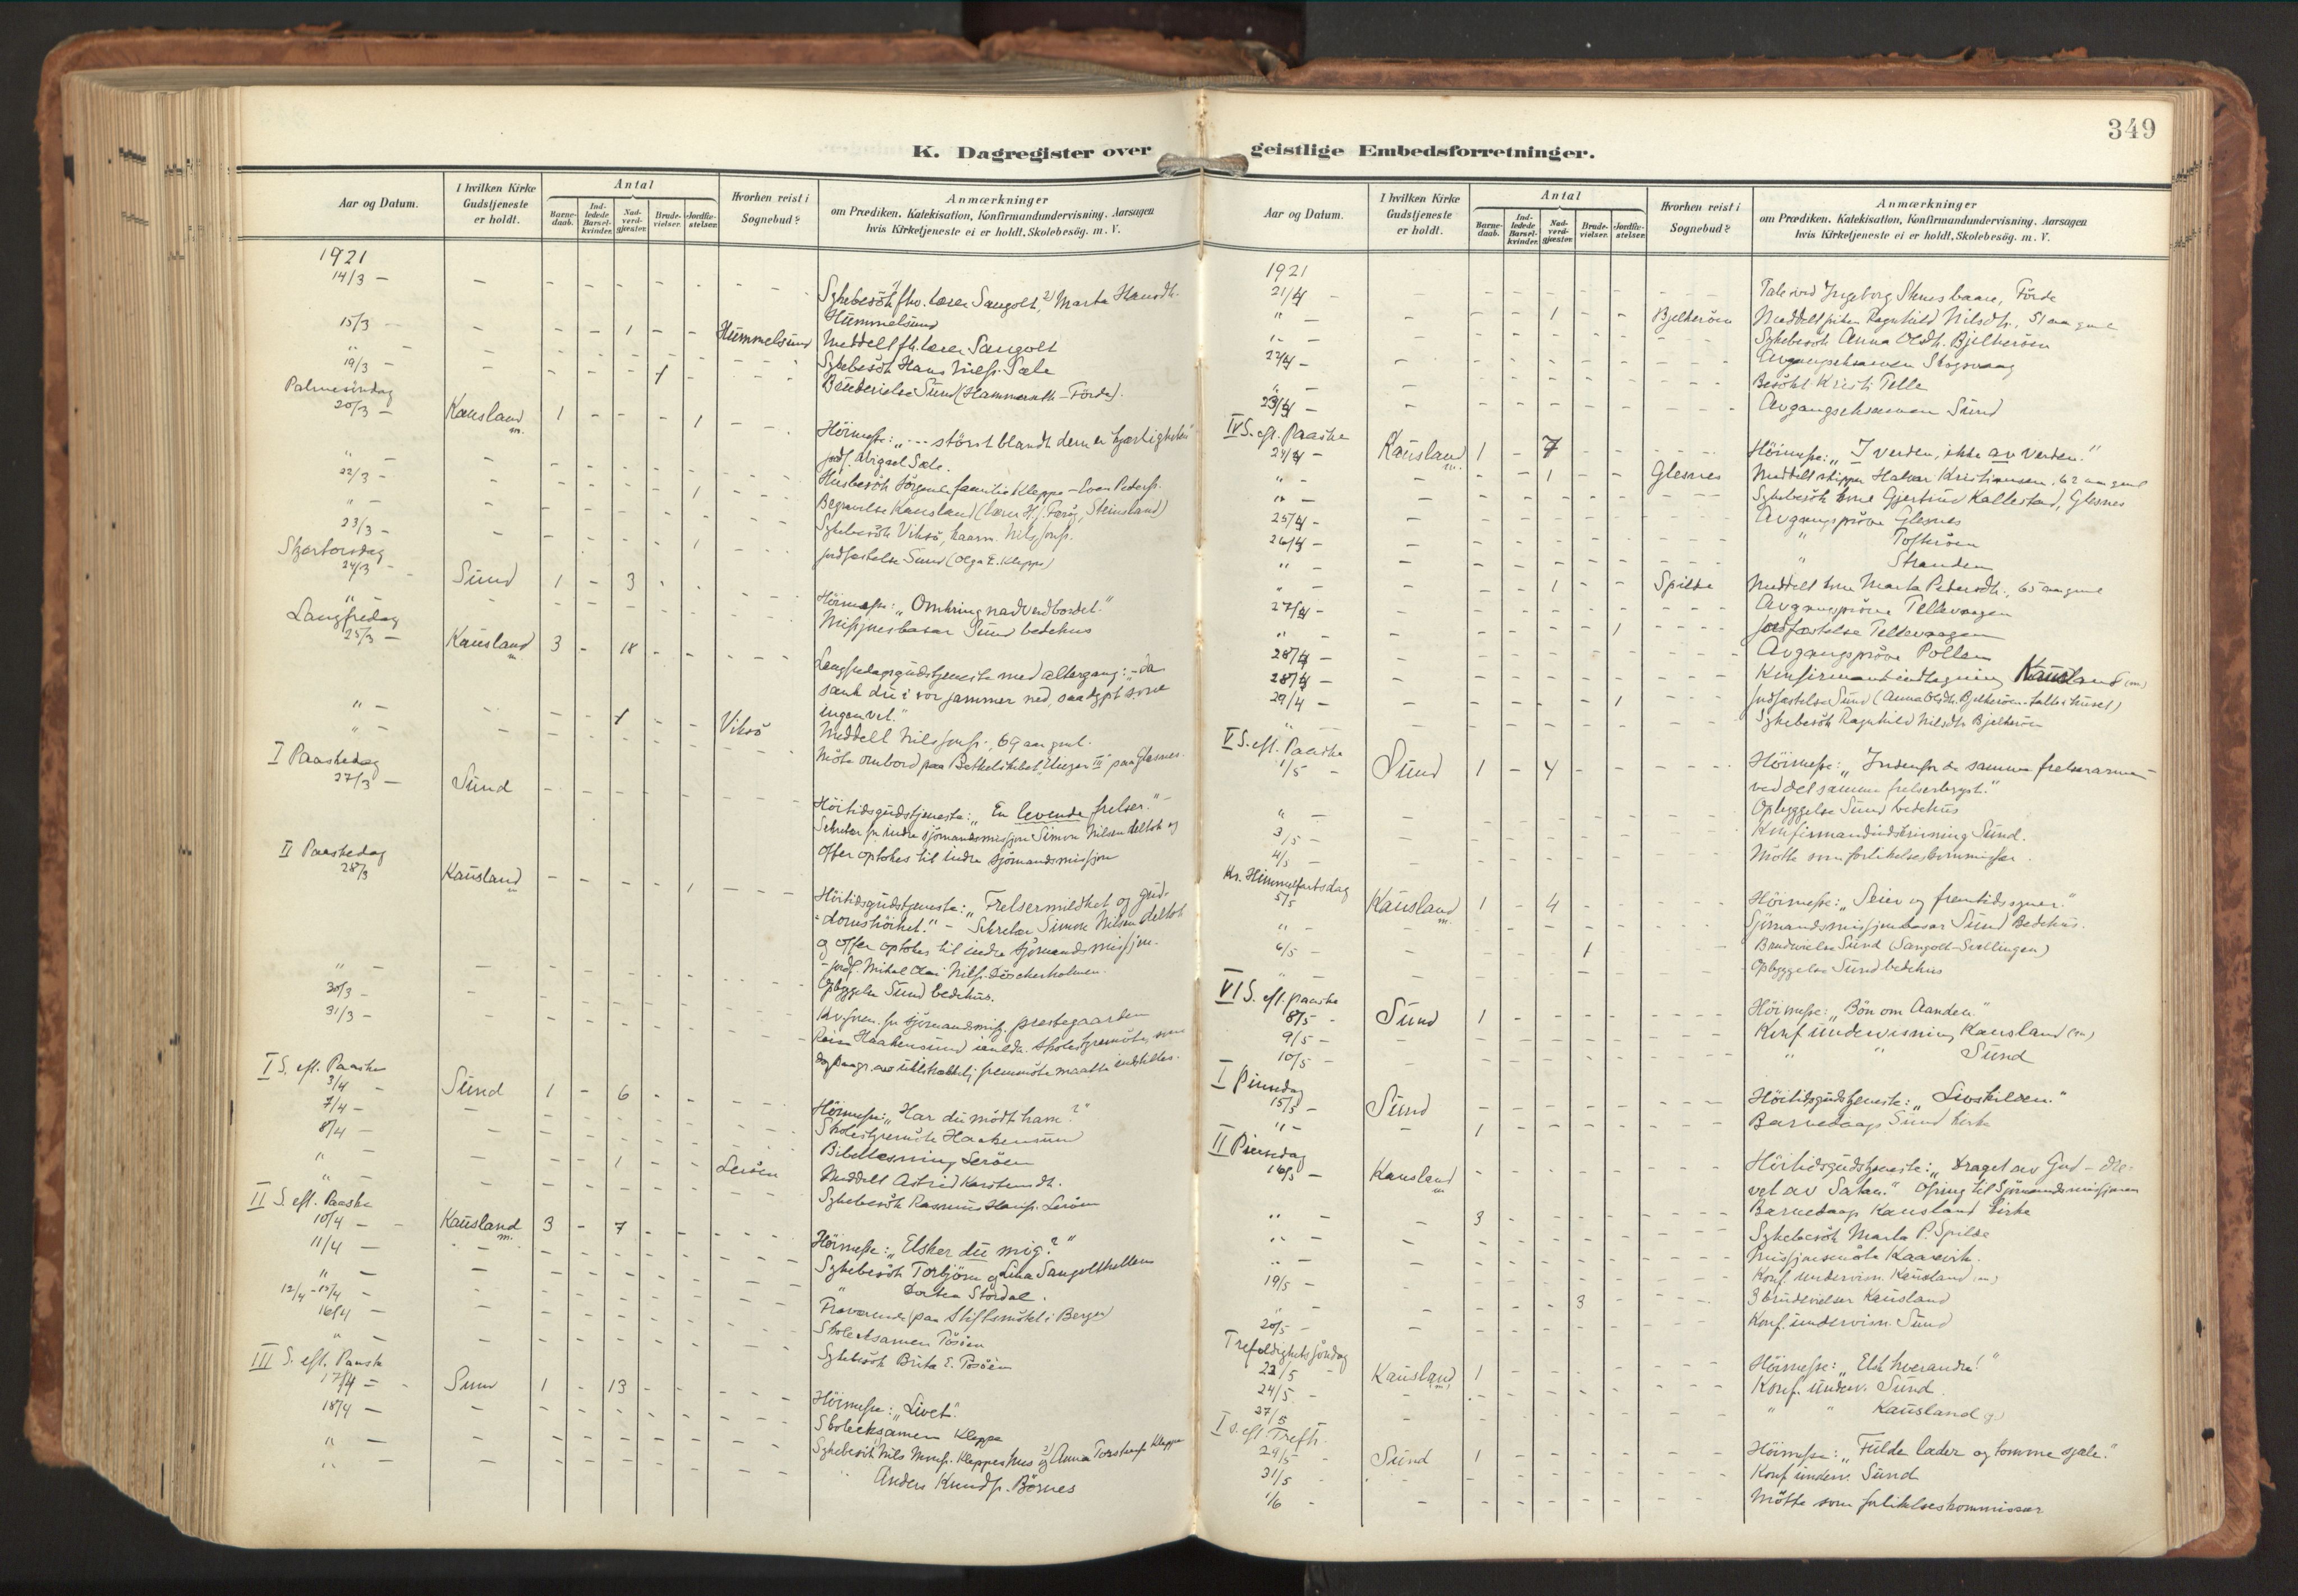 349
K. Dagregister over geistlige Embedsforretninger.
Aar og Datum.
I hvilken Kirke Gudstjeneste er holdt.
Antal
Barnedaab.
Indledede Barselkvinder.
Nadverdgjester.
Brudevielser.
Jordfæstelser.
Hvorhen reist i Sognebud?
Anmærkninger
om Prædiken, Katekisation, Konfirmandundervisning, Aarsagen
hvis Kirketjeneste ei er holdt, Skolebesøg. m. V.
1921
14/3 — Sykebesök 1) fhv. lærer Sangolt, 2) Marta Hansdt.
Hummelsund
15/3 — 1 Hummelsund Meddelt fh. lærer Sangolt
" — Sykebesök Hans Nilss. Sæle
19/3 — 1 Brudevielse Sund (Hammersth - Förde).
Palmesöndag
20/3 — Kausland m. 1 1 Höimesse: "--- störst blandt dem er kjærligheten"
jordf. Abigael Sæle.
" — Husbesök sörgende familie Kleppe - Even Peders.
22/3 — 1 Begravelse Kausland (lærer H. J. Steinsland)
" — Sykebesök Viksö, Nils Johs.
23/3 — 1 Jordfæstelse Sund (Olga E. Kleppe)
Skjærtorsdag
24/3 — Sund 1 - 3 Höimesse: "Omkring nadverdbordet."
" Missjonsbasar Sund bedehus
Langfredag
25/3 — Kausland m 3 - 18 Langfredagsgudstjeneste med altergang: "- Da
sank du i vor jammer ned, saa dypt som
ingen vet."
" — 1 Viksö Meddelt Nils Johs., 69 aar gml.
" — Möte ombord paa Bethelskibet "Elieser III" paa Glesnes.
I Paaskedag
27/3 — Sund Höitidsgudstjeneste: "En levende frelser." -
Sekretær for indre sjömandsmissjon Simon Nilsen deltok og
offer optokes til indre sjömandsmissjon
II Paaskedag
28/3 Kausland m 1 Höitidsgudstjeneste: "Frelsermildhet og gud-
domshöihet." - Sekretær Simon Nilsen deltok
og offer optokes til indre sjömandsmissjon.
- jordf. Mikal Olai Nilss.
" — Opbyggelse Sund bedehus.
30/3 — Kv.foren. for sjömandsmiss. prestegaarden
31/3 — Reise Haakensund skolestyremöte, som
maatte indstilles.
I S. eft. Paaske
3/4 — Sund 1 - 6 Höimesse: "Har du mödt ham?"
7/4 — Skolestyremöte Haakensund
8/4 — Bibellesning Leröen
" 1 Leröen Meddelt Astrid Karstensdt.
" Sykebesök Rasmus Hanss. Leröen
II S. eft. Paaske
10/4 — Kausland m. 3 - 7 Höimesse: "Elsker du mig?"
11/4 — Sykebesök Torbjörn og Lina Sangolthellem
" — " Dortea Stordal.
12/4 - 15/4 Fraværende paa Stiftsmötet i Bergen
16/4 — Skoleeksamen Tösöen
" Sykebesök Brita E. Tösöen
III S. eft. Paaske
17/4 — Sund 1 - 13 Höimesse: "Livet".
18/4 — Skoleeksamen Kleppe
" — Sykebesök 1) Nils Kleppeshus og 2) Anna Torstens. Kleppe
" " Anders Knuds. Börnes
Aar og Datum.
I hvilken Kirke Gudstjeneste er holdt.
Antal
Barnedaab.
Indledede Barselkvinder.
Nadverdgjester.
Brudevielser.
Jordfæstelser.
Hvorhen reist i Sognebud?
Anmærkninger
om Prædiken, Katekisation, Konfirmandundervisning, Aarsagen
hvis Kirketjeneste ei er holdt, Skolebesög. m. V.
1921
21/4 — Tale ved Ingeborg baare, Förde
" — 1 Bjelkeröen Meddelt Ragnhild Nilsdt., 51 aar gml
" — Sykebesök Anna Olsdt. Bjelkeröen
22/4 — Avgangseksamen Skogsvaag
" — Besökt Kristi Telle
23/4 — Avgangseksamen Sund
IV S. eft. Paaske
24/4 — Kausland m. 1 - 7 Höimesse: "I verden, ikke av verden."
" — 1 Glesnes Meddelt skipper Halvar Kristiansen, 62 aar gml
" — Sykebesök kone Gjertrud Kallestad, Glesnes
25/4 — Avgangspröve Glesnes
26/4 — " Tofteröen
" — " Stranden
" — 1 Spilde Meddelt kone Marta Pedersdt., 65 aar gml
27/4 — Avgangspröve Tellevaagen
" — 1 Jordfæstelse Tellevaagen
28/4 — Avgangspröve Pollen
28/4 — Konfirmantindtagning Kausland (m)
29/4 — 1 Jordfæstelse Sund (Anna Olsdt. Bjelkeröen - talte i huset)
" Sykebesök Ragnhild Nilsdt. Bjelkeröen
V S. eft. Paaske
1/5 — Sund 1 - 4 Höimesse: "Indenfor de samme frelserarme -
ved det samme frelserbryst."
" — Opbyggelse Sund bedehus
3/5 — Konfirmandindskrivning Sund.
4/5 — Mötte som forlikelseskommissær.
Kr. Himmelfartsdag
5/5 Kausland m. 1 - 4 Höimesse: "Seier og fremtidssyner."
" — Sjömandsmissjonsbasar Sund Bedehus.
6/5 — 1 Brudevielse Sund (Sangolt-Skillingen)
" — Opbyggelse Sund bedehus
VI S. eft. paaske
8/5 - Sund 1 Höimesse: "Bön om Aanden."
9/5 — Konf undervisning Kausland (m)
10/5 — " " Sund
I Pinsedag
15/5 — Sund Höitidsgudstjeneste: "Livskilden."
" — 1 Barnedaap Sund kirke
II Pinsedag
16/5 — Kausland m Höitidsgudstjeneste: "Draget av Gud - dre-
vet av Satan." Ofring til Sjömandsmissjonen
" — 3 Barnedaap Kausland kirke
" — Sykebesök Marta P. Spilde
" — Missjonsmöte
19/5 — Konf. undervisn. Kausland (m)
" — 3 3 brudevielser Kausland
20/5 — Konf. undervisn. Sund
Trefoldighetssöndag
22/5 Kausland m 1 Höimesse: "Elsk hverandre!"
24/5 - Konf. underv. Sund.
27/5 " " Kausland
I S. eft. Trefh.
29/5 - Sund 1 Höimesse: "Fulde lader og tomme sjæle."
31/5 Konf underv. Sund
1/6 - Mötte som forlikelseskommissær